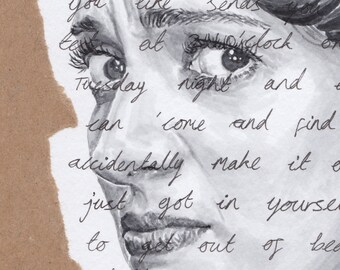 you like sends
at o'clock on
Tuesday night and
can 'come and find
accidentally make it
just got in yourse
to get out of be